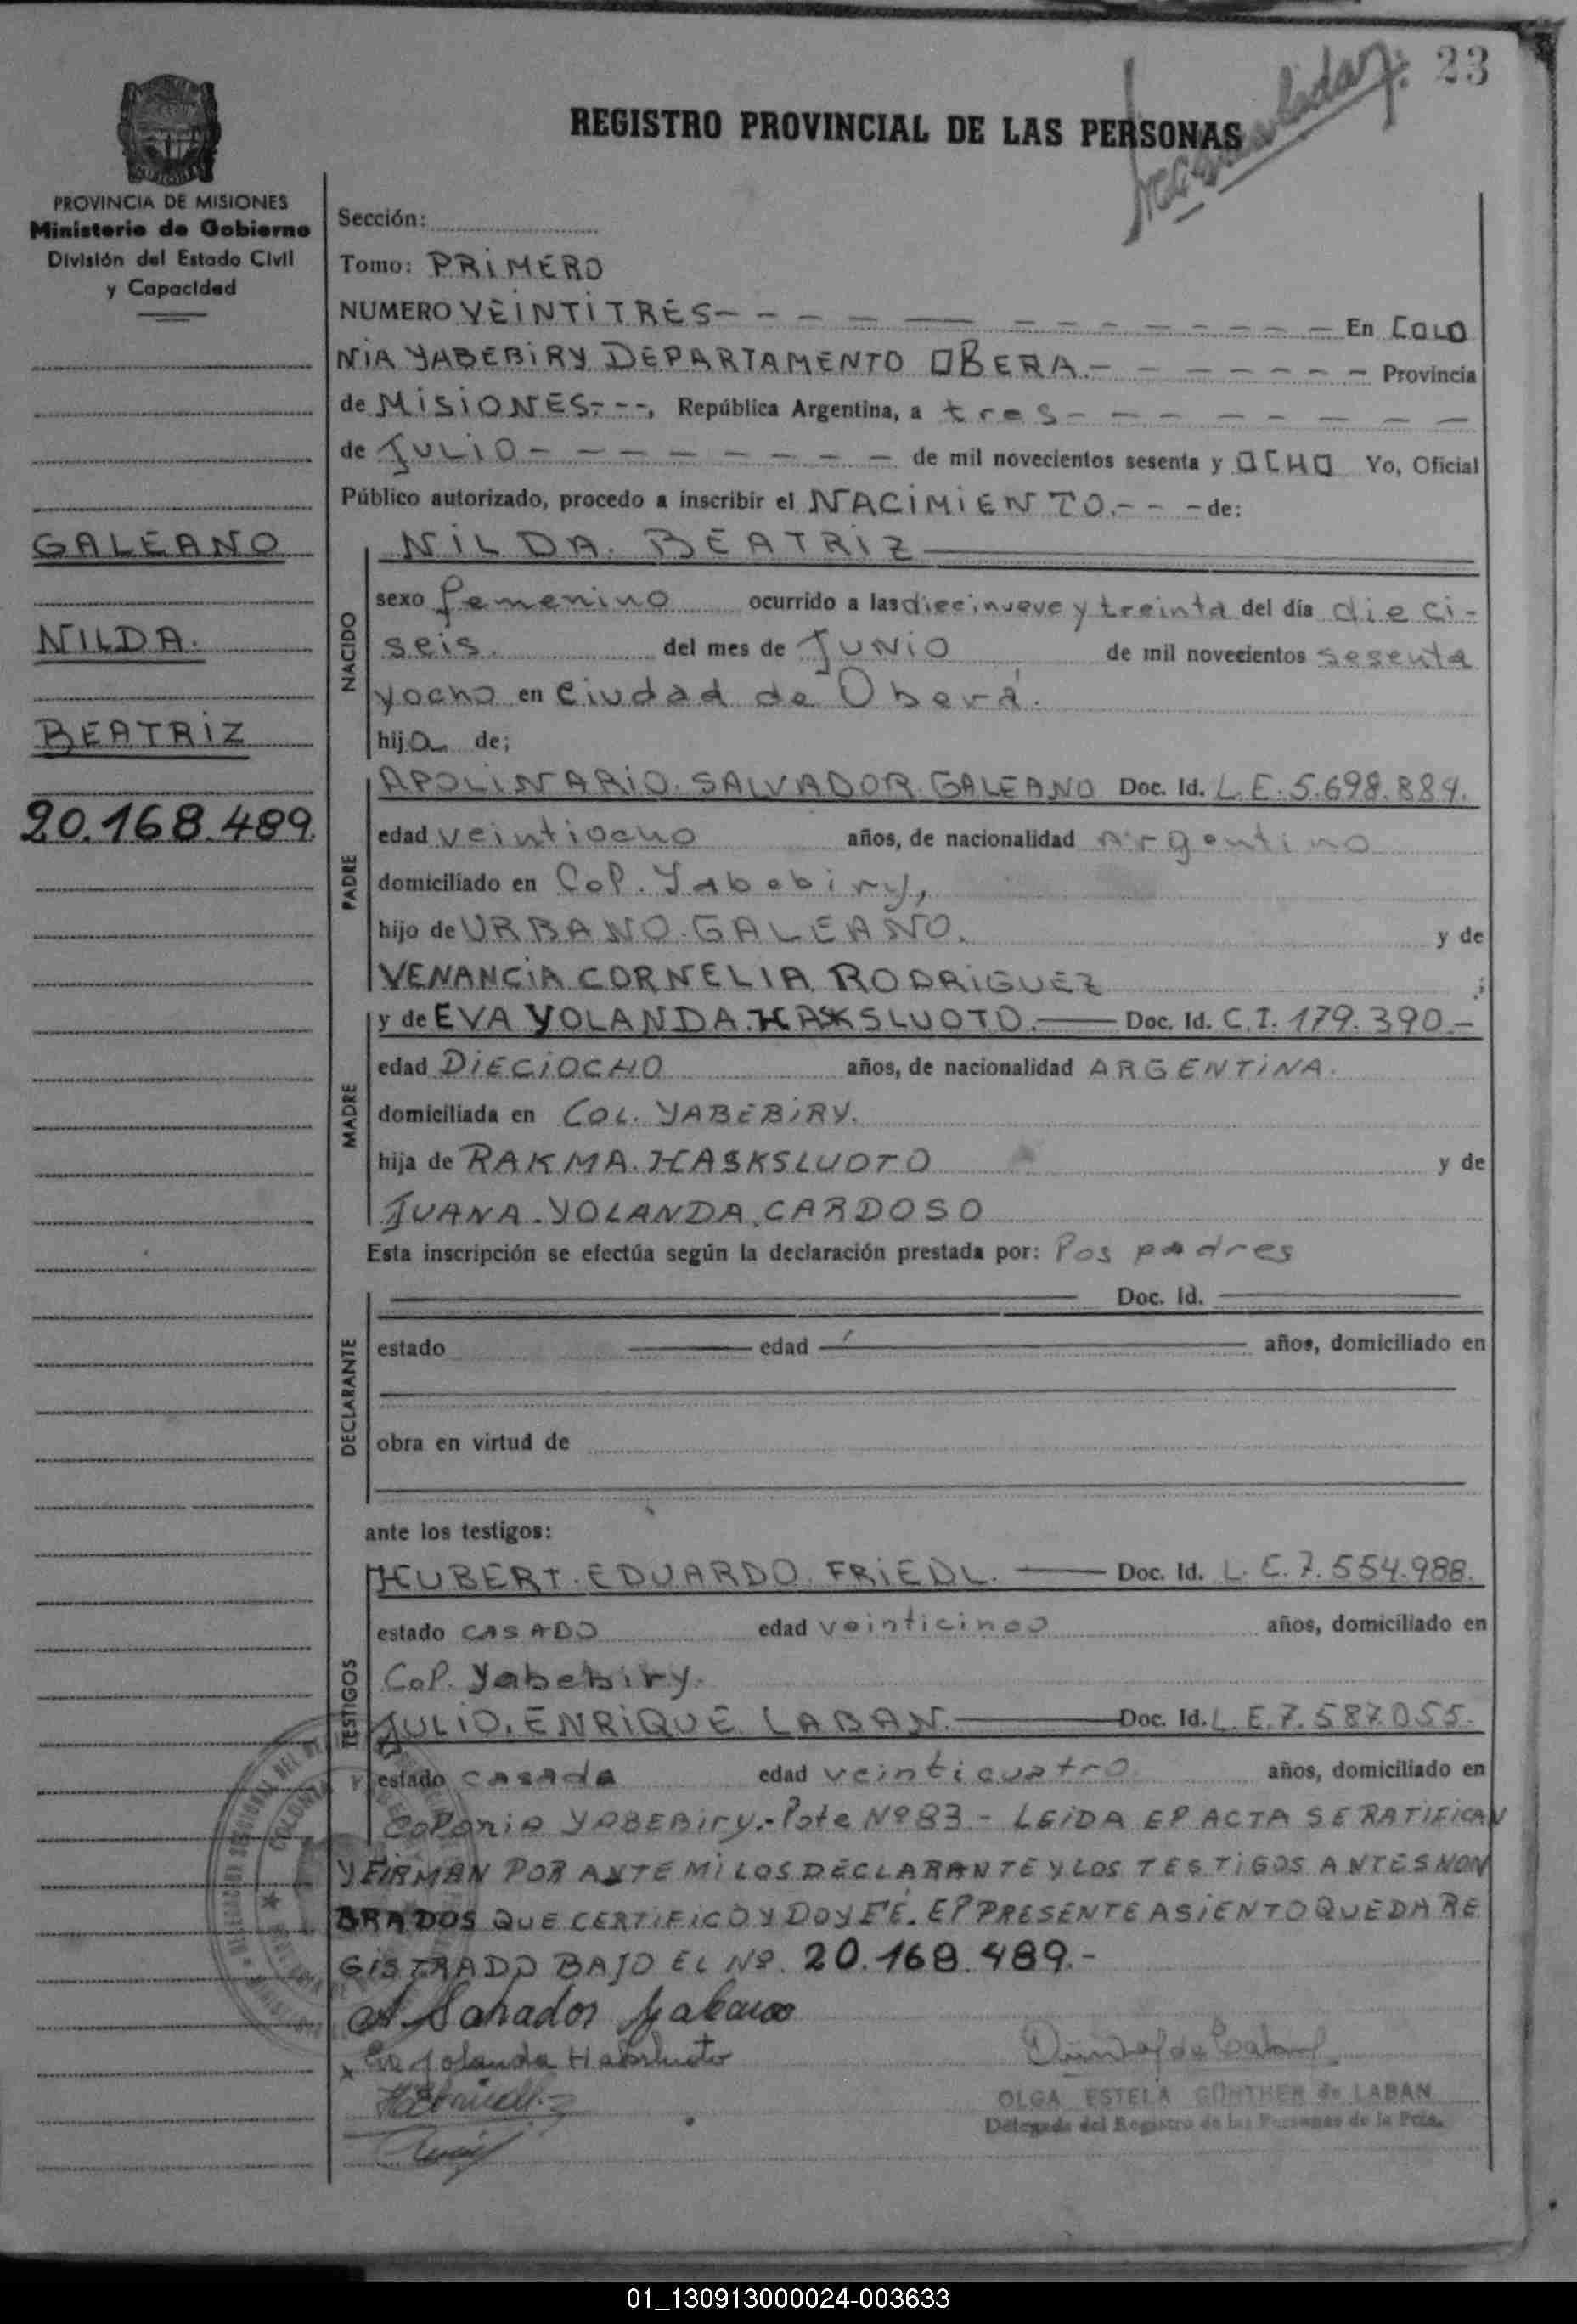 23
REGISTRO PROVINCIAL DE LAS PERSONAS
PROVINCIA DE MISIONES
Ministerio de Gobierno
División del Estado Civil
y Capacidad
GALEANO
NILDA.
BEATRIZ
20.168.489.
Sección:
Tomo: PRIMERO
NUMERO VEINTITRES- - - - - - En COLO
NIA YABEBIRY DEPARTAMENTO OBERA.- - - - - - Provincia
de MISIONES.- - -, República Argentina, a tres- - - - - -
de JULIO- - - - - - de mil novecientos sesenta y OCHO Yo, Oficial
Público autorizado, procedo a inscribir el NACIMIENTO.- - - de:
NACIDO
NILDA. BEATRIZ
sexo femenino ocurrido a las diecinueve y treinta del día dieci-
seis. del mes de JUNIO de mil novecientos sesenta
y ocho en ciudad de Oberá.
hija de;
PADRE
APOLINARIO. SALVADOR. GALEANO Doc. Id. L.E. 5.698.884.
edad veintiocho años, de nacionalidad Argentino
domiciliado en Col. Yabebiry,
hijo de URBANO. GALEANO. y de
VENANCIA CORNELIA RODRIGUEZ ;
MADRE
y de EVA YOLANDA. HASKSLUOTO. Doc. Id. C.I. 179.390.-
edad DIECIOCHO años, de nacionalidad ARGENTINA.
domiciliada en COL. YABEBIRY.
hija de RAKMA. HASKSLUOTO y de
JUANA. YOLANDA. CARDOSO
Esta inscripción se efectúa según la declaración prestada por: los padres
DECLARANTE
Doc. Id.
estado edad años, domiciliado en
obra en virtud de
ante los testigos:
TESTIGOS
HUBERT. EDUARDO. FRIEDL. Doc. Id. L.E. 7.554.988.
estado CASADO edad veinticinco años, domiciliado en
Col. Yabebiry.
JULIO. ENRIQUE LABAN. Doc. Id. L.E. 7.587.055.
estado casada edad veinticuatro años, domiciliado en
Colonia YABEBIRY.- lote Nº 83 - LEIDA El ACTA SE RATIFICAN
Y FIRMAN POR ANTE MI LOS DECLARANTE Y LOS TESTIGOS ANTES NON
BRADOS QUE CERTIFICO Y DOY FÉ. El PRESENTE ASIENTO QUEDA RE
GISTRADO BAJO EL Nº. 20.168.489.-
A. Salvador Galeano
x Eva Yolanda Haksluoto
OLGA ESTELA GÜNTHER de LABAN
Delegada del Registro de las Personas de la Pcia.
COLONIA
01_130913000024-003633